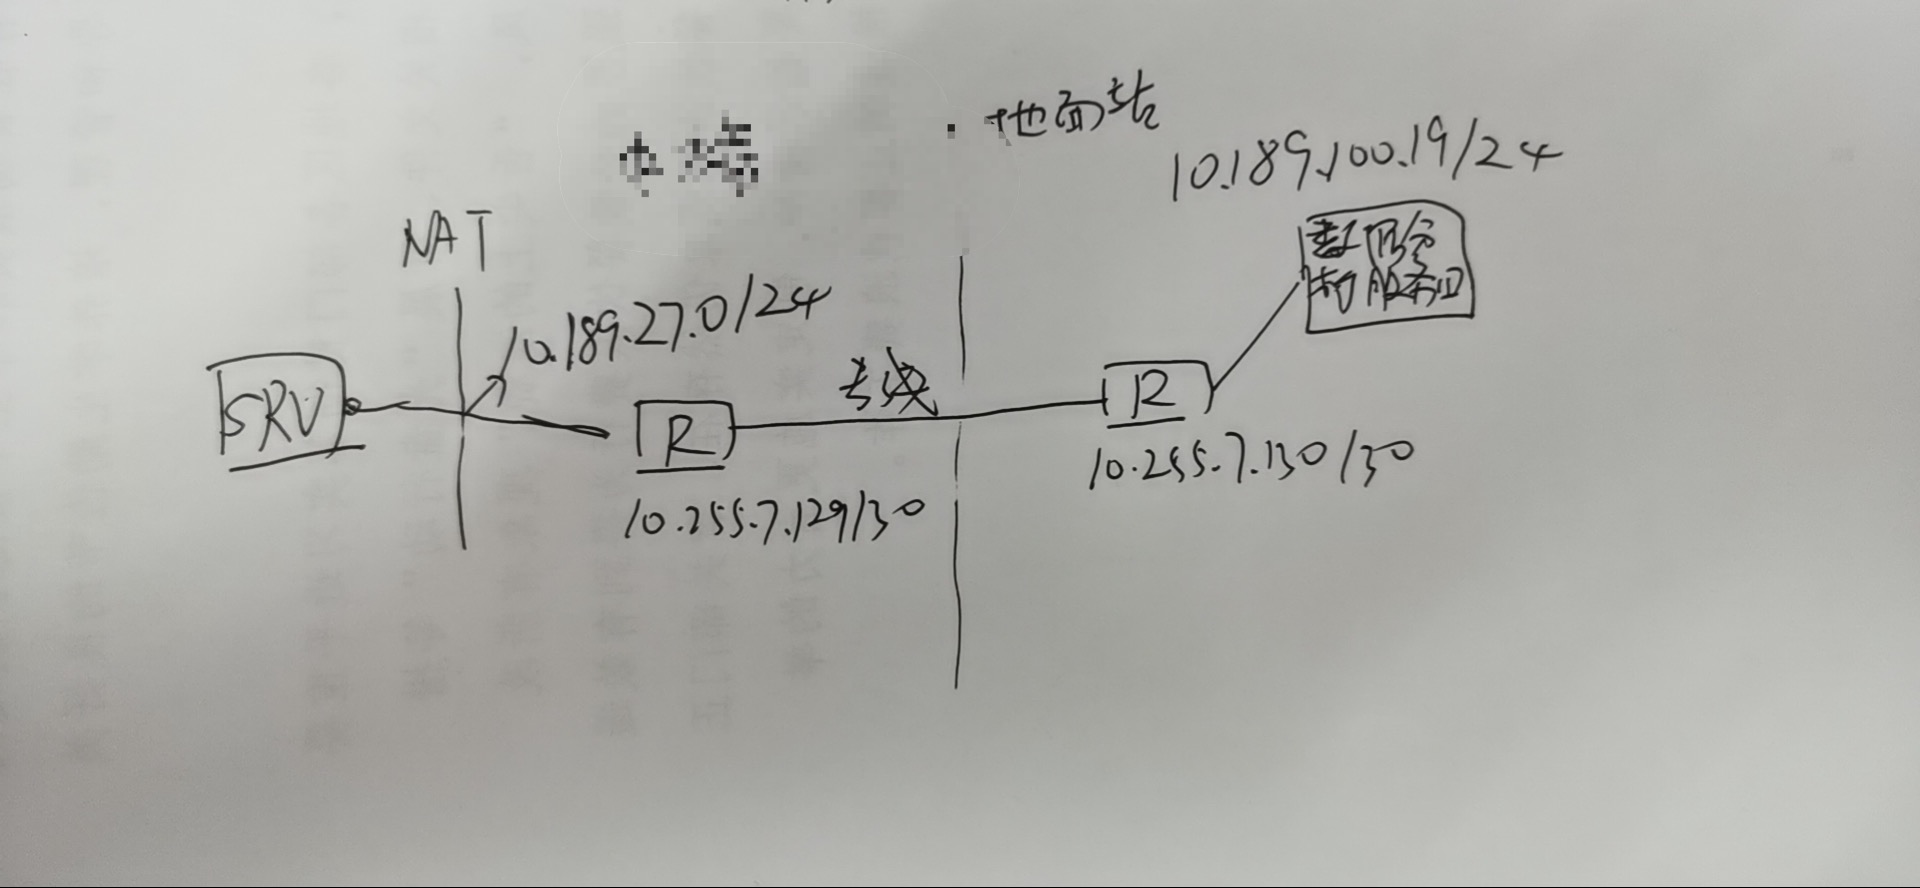 地面站
10.189.100.19/24
NAT
10.189.27.0/24
SRV
R
专线
R
10.255.7.129/30
10.255.7.130/30